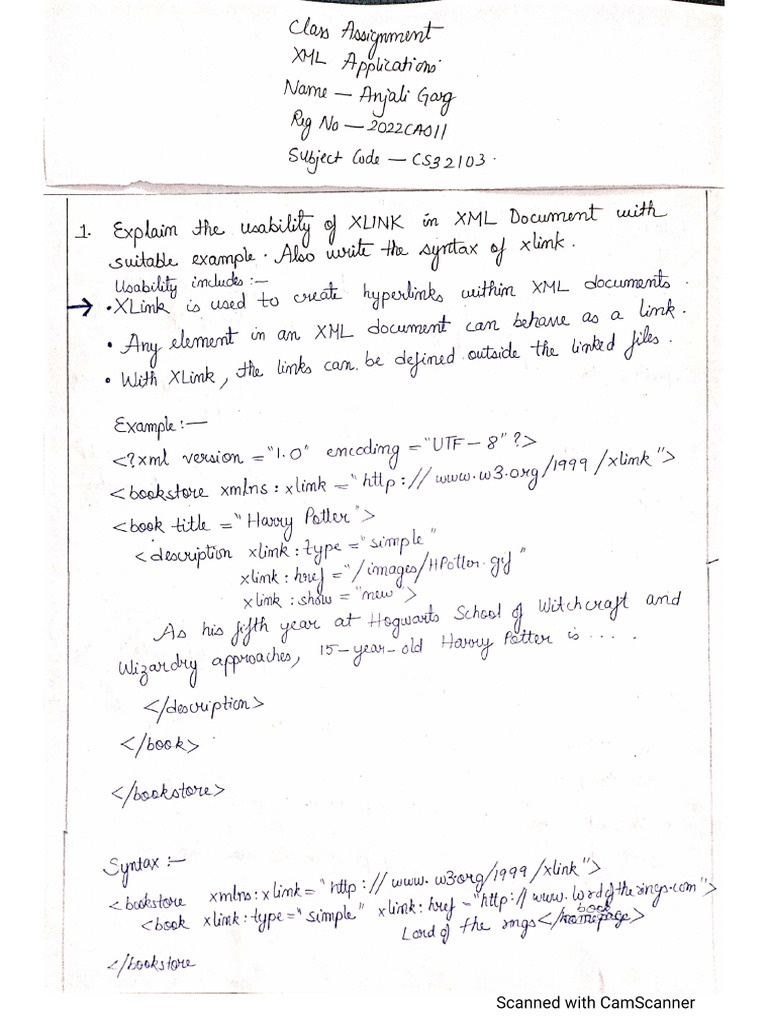 Class Assignment
XML Applications
Name — Anjali Garg
Reg No — 2022CA011
Subject Code — CS32103.
1. Explain the usability of XLINK in XML Document with
suitable example. Also write the syntax of xlink.
Usability includes :—
→ • XLink is used to create hyperlinks within XML documents.
• Any element in an XML document can behave as a link.
• With XLink, the links can be defined outside the linked files.
Example :—
<?xml version = "1.0" encoding = "UTF-8" ?>
<bookstore xmlns : xlink = "http : // www.w3.org/1999/xlink">
<book title = "Harry Potter">
<description xlink : type = "simple"
xlink : href = "/images/HPotter.gif"
xlink : show = "new">
As his fifth year at Hogwarts School of Witchcraft and
Wizardry approaches, 15-year-old Harry Potter is .....
</description>
</book>
</bookstore>
Syntax :—
<bookstore xmlns : xlink = "http : // www. w3.org/1999/xlink">
<book xlink : type = "simple" xlink : href = "http : // www. lordoftherings.com">
Lord of the rings</book>
</bookstore
Scanned with CamScanner